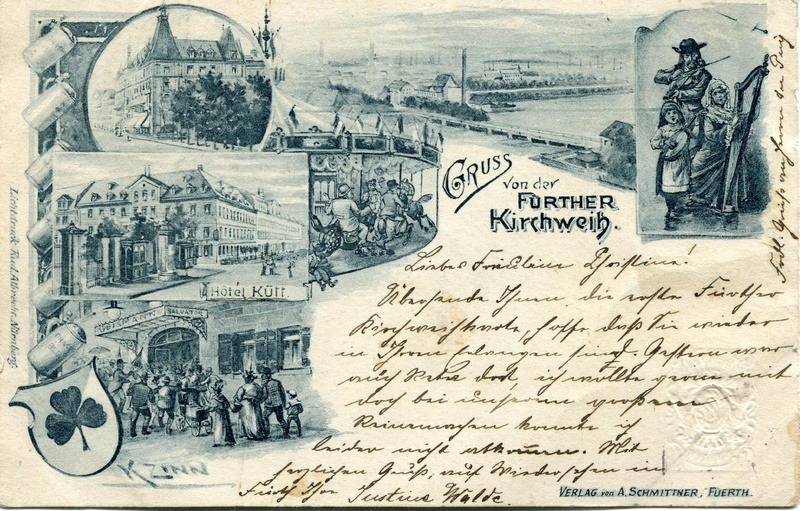 GRUSS
von der
FÜRTHER
Kirchweih.
Hotel Kütt.
SALVATOR
K. ZINN
Liebes Fräulein Christine!
Übersende Ihnen die erste Fürther
Kirchweihkarte, hoffe, daß Sie wieder
in Ihrem Erlangen sind. Gestern war
auch dort, ich wollte gerne mit
doch bei unserem großen
Reinemachen konnte ich
leider nicht abkommen. Mit
herzlichen Gruß, auf Wiedersehen in
Fürth Ihre Justine Walde.
VERLAG von A. SCHMITTNER, FUERTH.
Lichtdruck Albrecht Nürnberg.